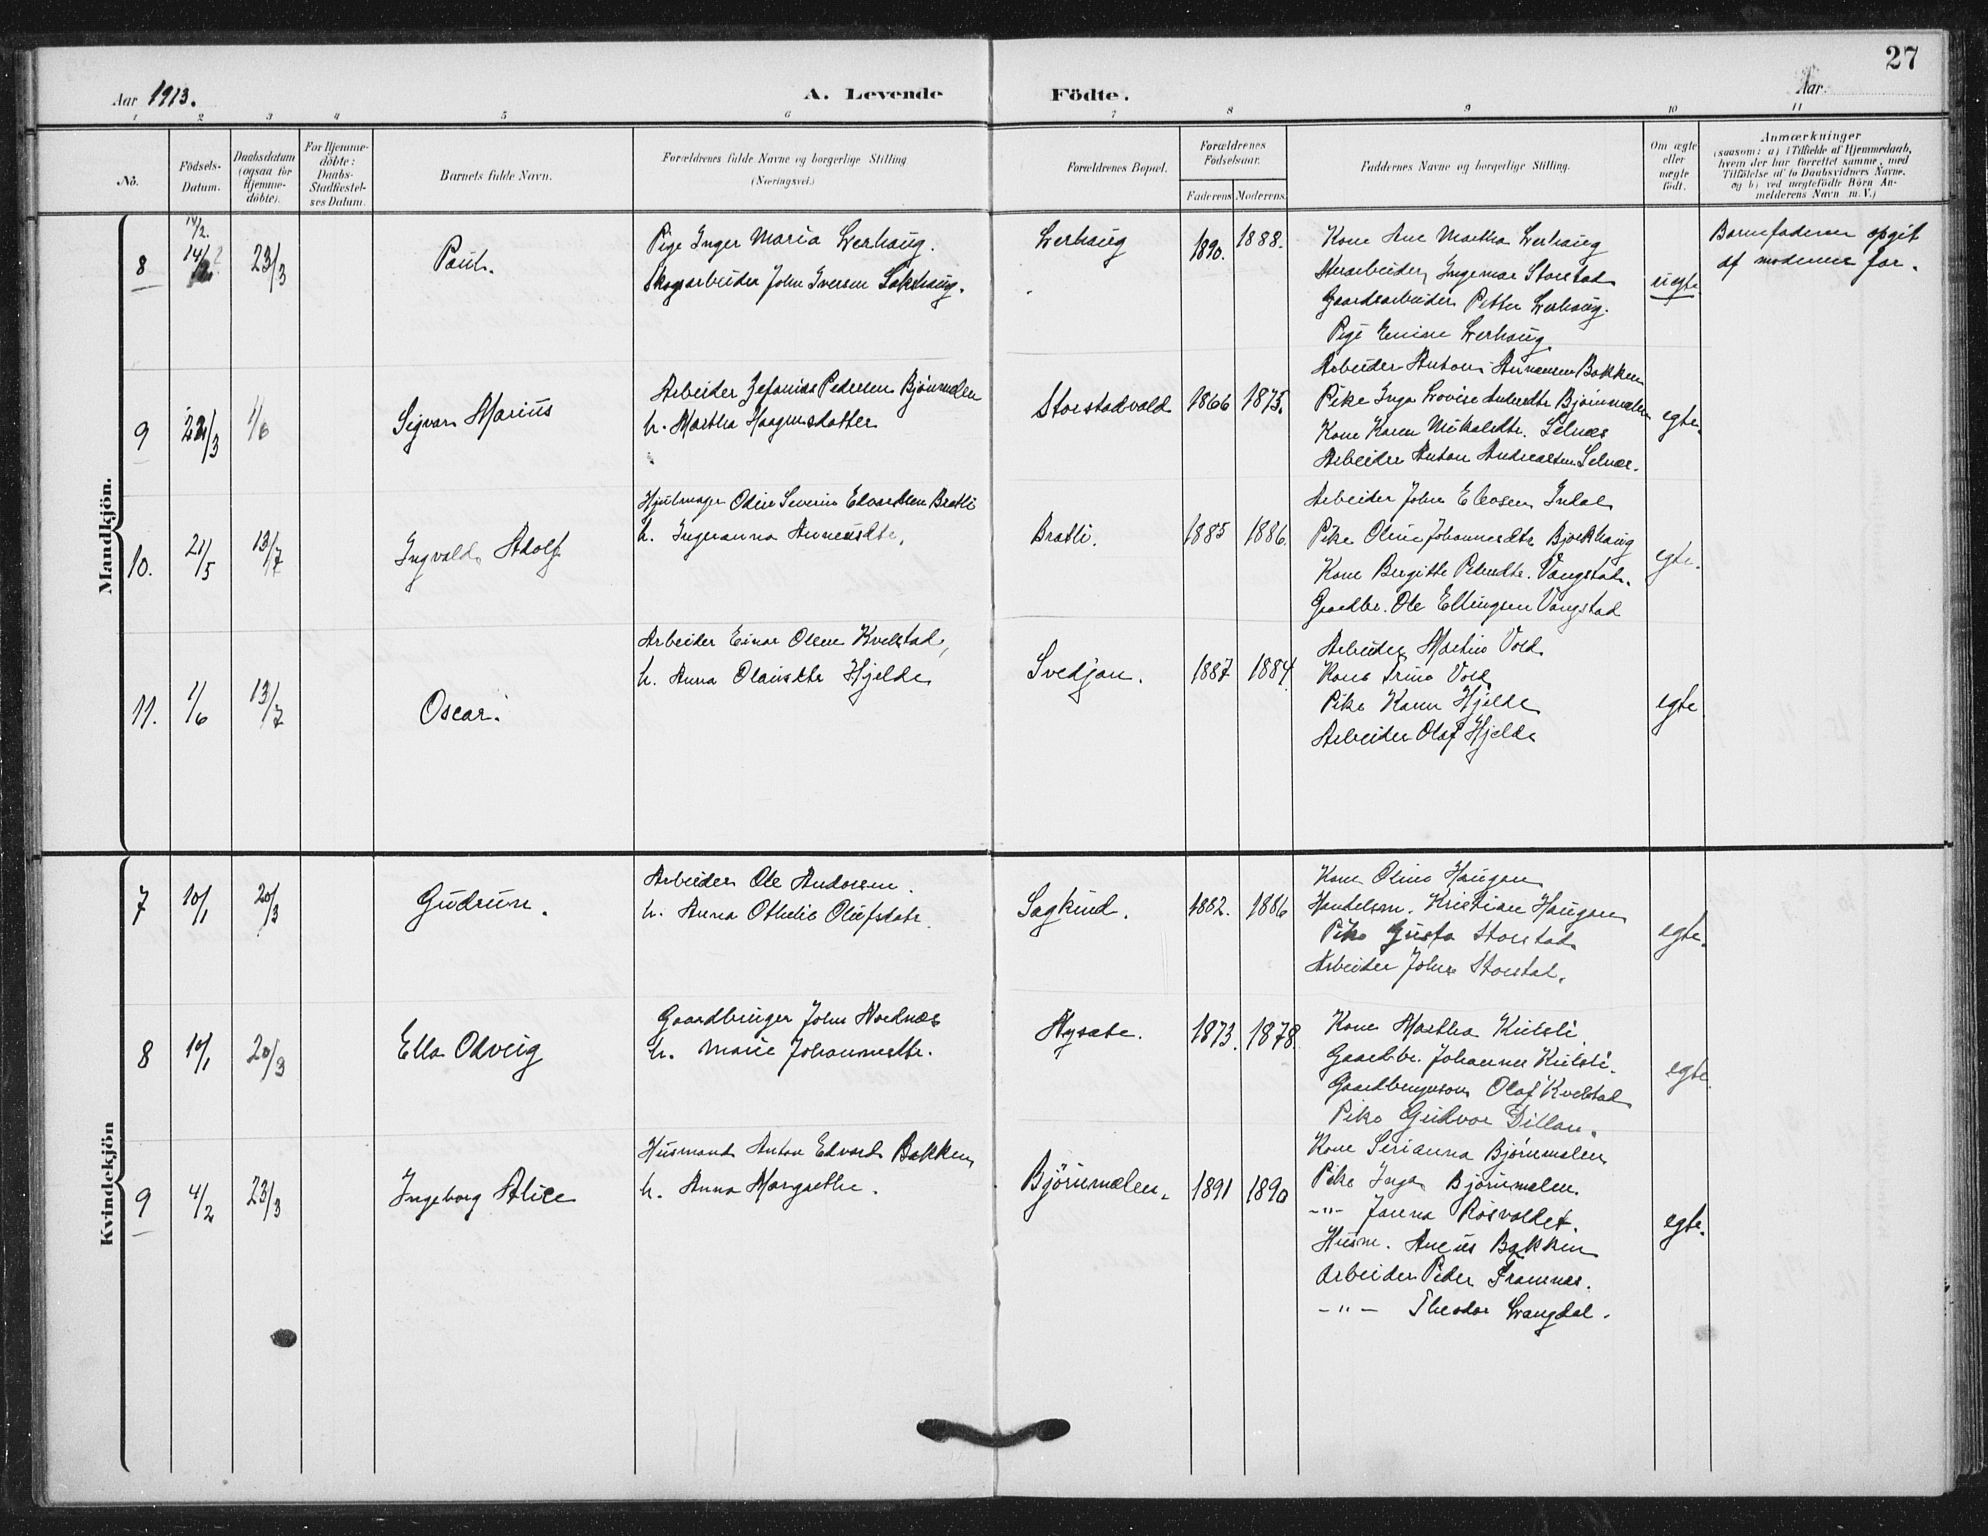 27
Aar 1913.
A. Levende Födte.
Aar
1 2 3 4 5 6 7 8 9 10 11
No.
Födsels-Datum.
Daabsdatum (ogsaa for Hjemme-döbte).
For Hjemme-döbte: Daabs-Stadfæstel-ses Datum.
Barnets fulde Navn.
Forældrenes fulde Navne og borgerlige Stilling (Næringsvei.)
Forældrenes Bopæl.
Forældrenes Födselsaar.
Faderens Moderens
Faddernes Navne og borgerlige Stilling.
Om ægte eller uægte födt.
Anmærkninger
(saasom: a) i Tilfælde af Hjemmedaab,
hvem der har forrettet samme, med
Tilföielse af to Daabsvidners Navne,
og b) ved uægtefödte Börn An-
melderens Navn m. V.)
Mandkjön.
8 14/2. 14/2 23/3 Paul.
Pige Inger Maria Lerhaug.
Skogsarbeider John Iversen Sakshaug.
Lerhaug 1890. 1888.
Kone Ane Martha Lerhaug
Ingemar Storstad
Gaardsarbeider Petter Lerhaug.
Pige Emine Lerhaug
uegte
Barnefaderen opgit
af moderens far.
9 22/3 1/6 Sigvar Marius
Arbeider Zefanias Pedersen Bjørnmelen
h. Martha Haagensdatter
Storstadvald 1866 1875.
Arbeider Anton Bakken
Pike Inga Lovise Bjørnmælen
Kone Karen Mikalsdtr. Selnæs
Arbeider Anton Andreassen Selnæs.
egte.
10. 21/5 13/7 Ingvald Adolf
Hjulmager Odin Severin Edvardsen Bratli
h. Ingeranna Arneusdtr.
Bratli. 1885 1886.
Arbeider John Eliasen Indal
Pike Oline Johannesdtr Bjørkhaug
Kone Bergitte Pedersdtr. Vangstad.
Gaardbr. Ole Ellingsen Vangstad
egte.
11. 1/6 13/7 Oscar.
Arbeider Einar Olsen Kvelstad,
h. Anna Olausdtr Hjelde
Svedjan. 1887 1884.
Arbeider Martin Vold
Kone Trine Vold
Pike Karen Hjelde
Arbeider Olaf Hjelde
egte
Kvindekjön
7 10/1 20/3 Gudrun.
Arbeider Ole Andersen.
h. Anna Othelie Olufsdatr.
Sagkind. 1882. 1886
Kone Oline Haugan
Handelsm. Kristian Haugan
Pike Gusta Storstad
Arbeider John Storstad.
egte.
8 10/1 20/3 Ella Odveig
Gaardbruger John Nordnæs
h. Marie Johannesdtr.
1873. 1878.
Kone Martha Kulsli.
Gaardbr. Johannes Kulsli.
Gaardbrugersøn Olaf Kvelstad
Pike Gudvor Dillan.
egte.
9 4/2 23/3 Ingeborg Alice
Husmand Anton Edvard Bakken
h. Anna Margrethe.
Bjørnmælen. 1891 1890
Kone Serianna Bjørnmælen
Pike Inga Bjørnmælen.
-"- Janna Rosvoldet.
Husm. Aneus Bakken
Arbeider Peder Framnæs.
-"- Theodor Langdal.
egte.